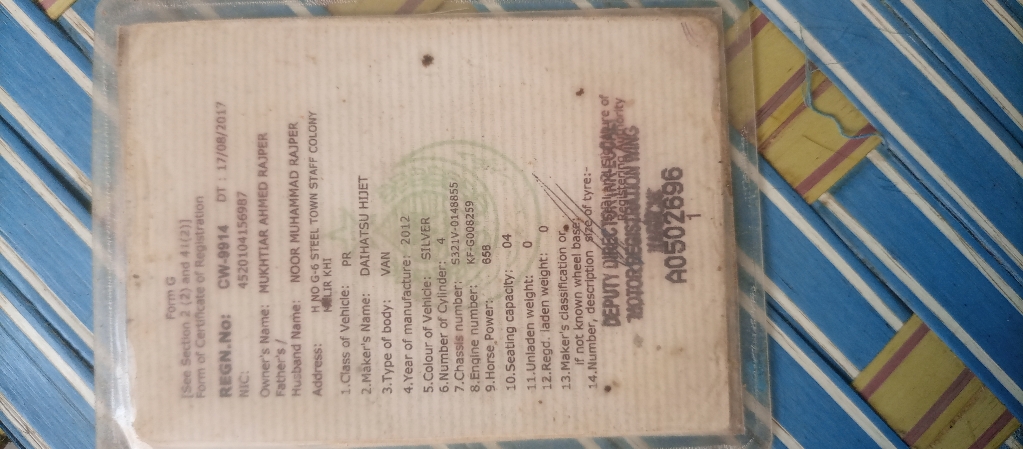 Form G
[See Section 2 (2) and 41(2)]
Form of Certificate of Registration
REGN.No: CW-9914 DT : 17/08/2017
NIC: 4520104156987
Owner's Name: MUKHTIAR AHMED RAJPER
Father's /
Husband Name: NOOR MUHAMMAD RAJPER
Address: H NO G-6 STEEL TOWN STAFF COLONY
MALIR KHI
1.Class of Vehicle: PR
2.Maker's Name: DAIHATSU HIJET
3.Type of body: VAN
4.Year of manufacture: 2012
5.Colour of Vehicle: SILVER
6.Number of Cylinder: 4
7.Chassis number: S321V-0148855
8.Engine number: KF-G008259
9.Horse Power: 658
10.Seating capacity: 04
11.Unladen weight: 0
12.Regd. laden weight: 0
13.Maker's classification or
if not known wheel base:
14.Number, description size of tyre:-
Registering Authority
DEPUTY DIRECTOR
MOTOR REGISTRATION WING
A0502696
1